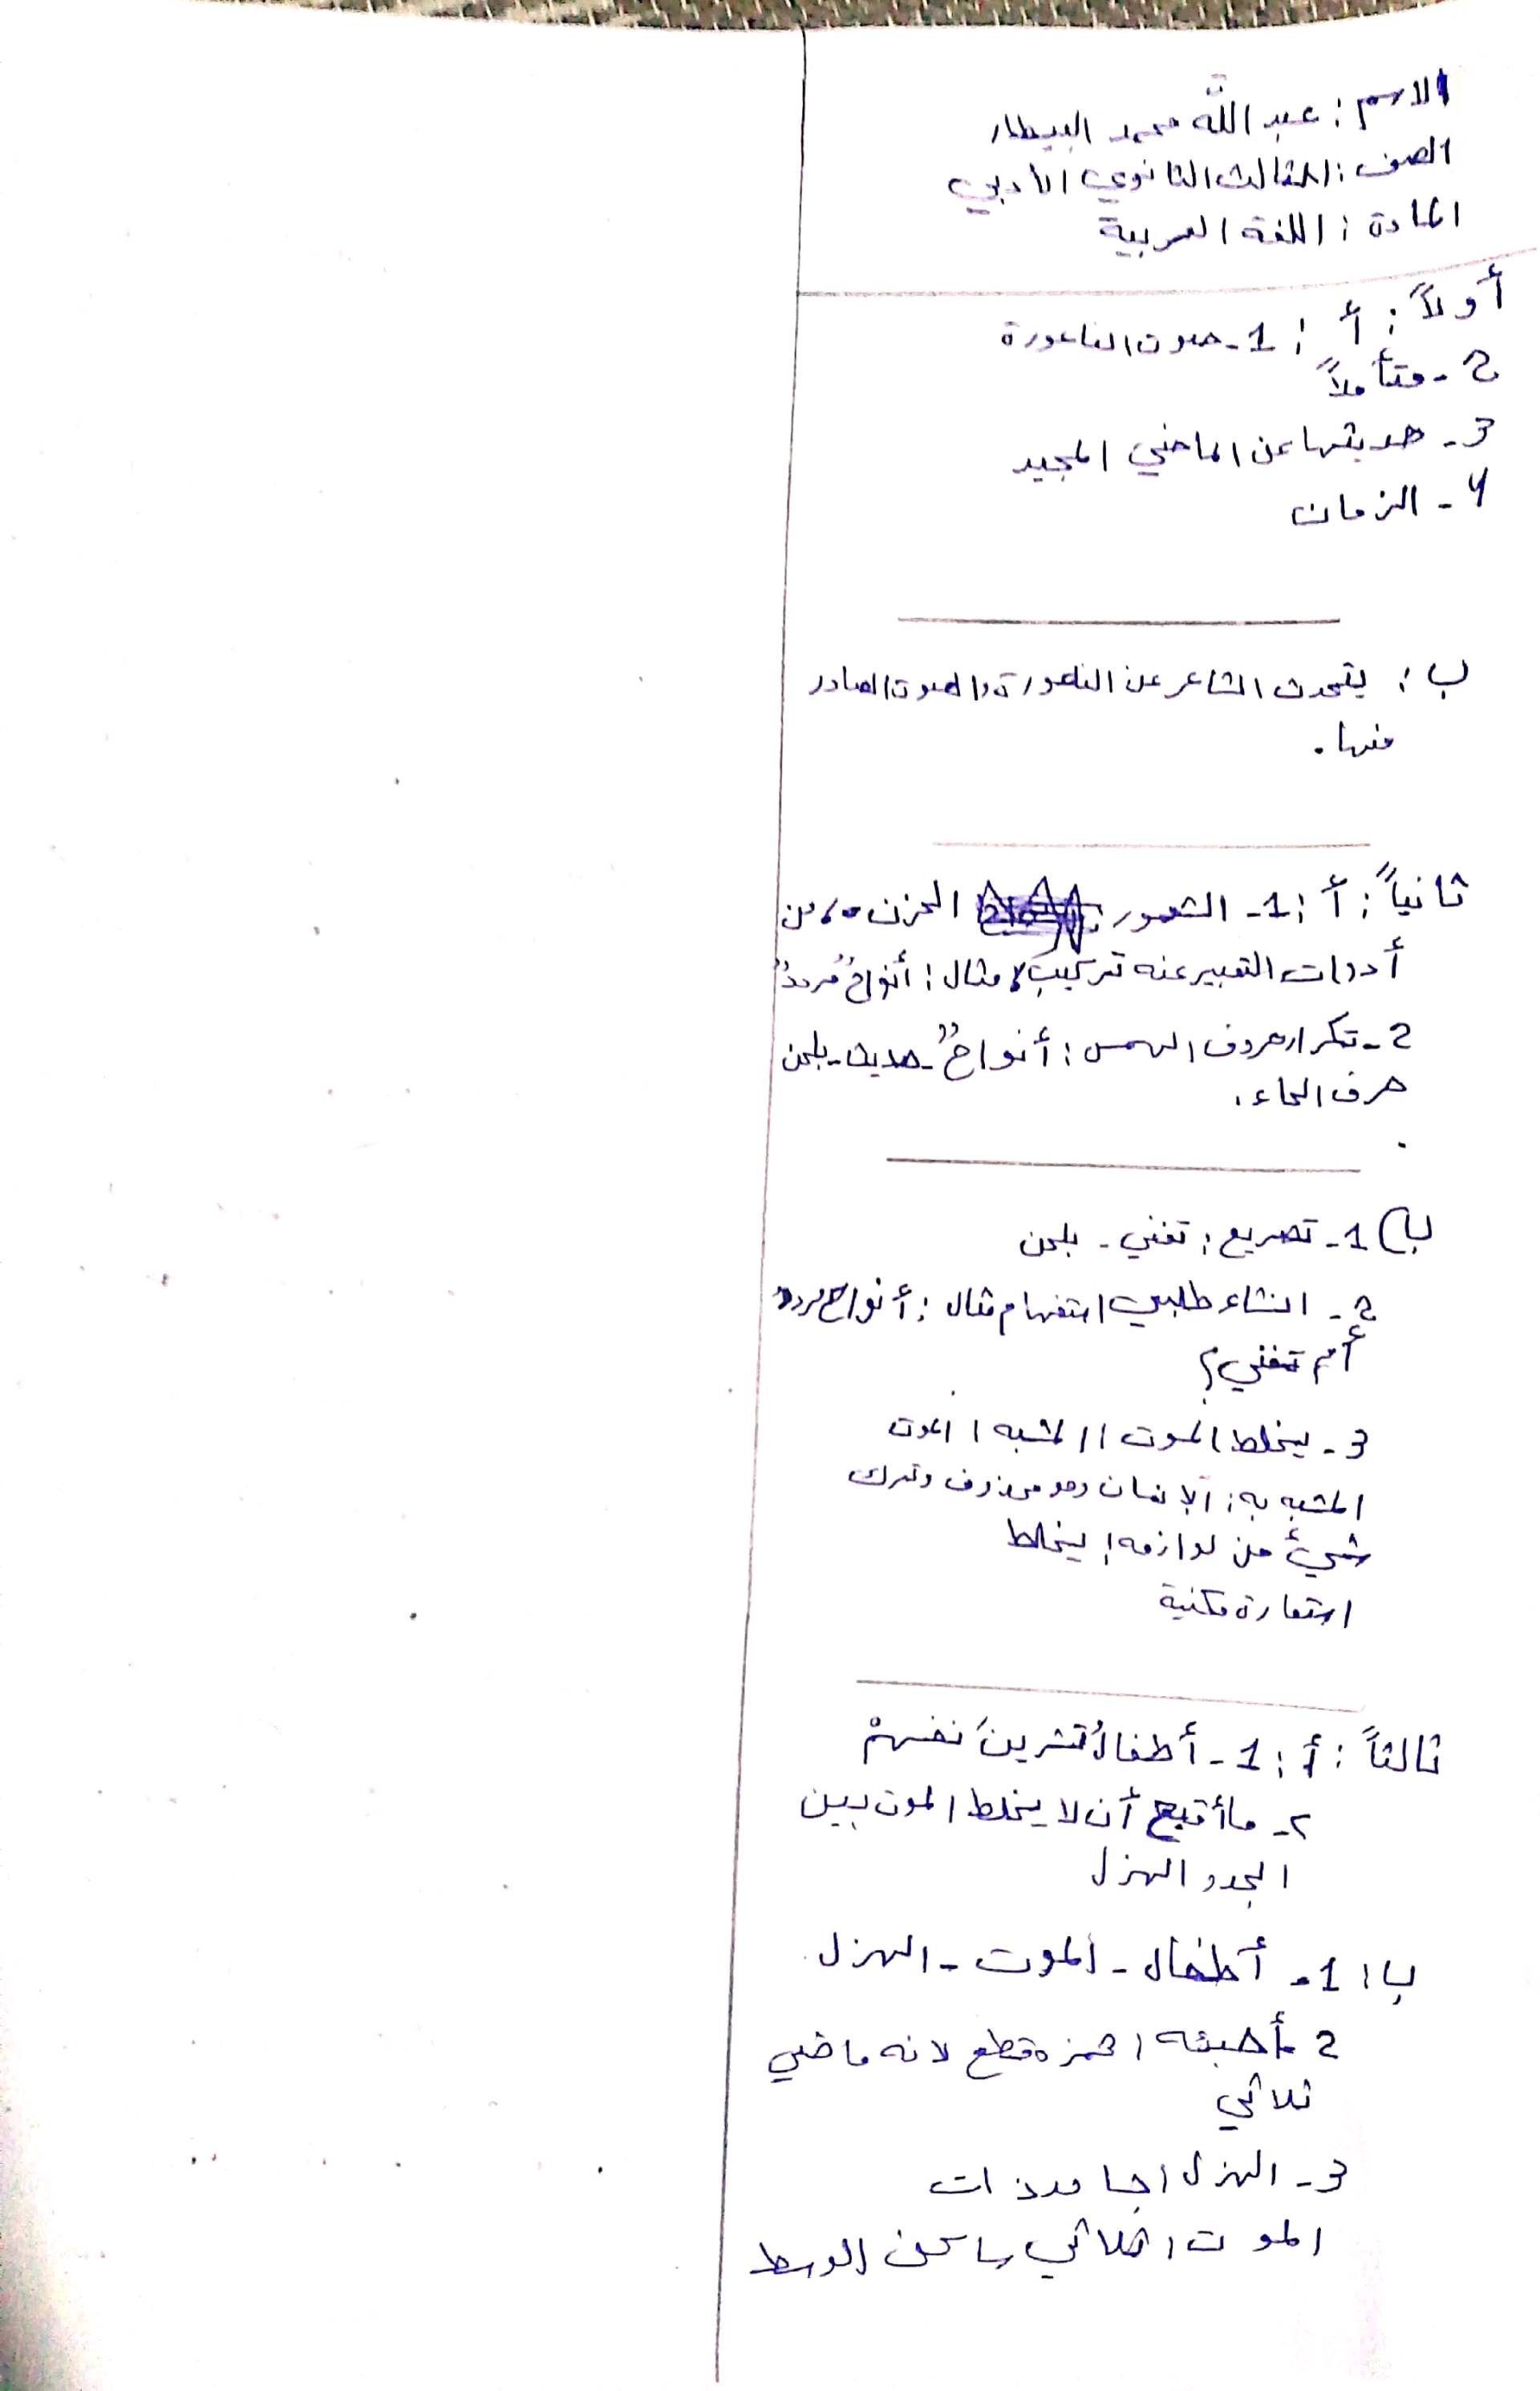 الاسم : عبد الله محمد البيطار
الصف : الثالث الثانوي الأدبي
المادة : اللغة العربية
أولاً : أ : 1- صوت الناعورة
2- متأملاً
3- حديثها عن الماضي المجيد
4- الزمان
ب : يتحدث الشاعر عن الناعورة والصوت الصادر
منها .
ثانياً : أ : 1- الشعور : الحزن ، من
أدوات التعبير عنه تركيب ، مثال : أنواحٌ مردد
2- تكرار حروف الهمس : أنواحٌ - حديث - بلحن
حرف الحاء .
ب) 1- تصريع : تغني - بلحن
2- انشاء طلبي استفهام مثال : أنواح مردد
أم تغني ؟
3- يخلط الموت / المشبه : الموت
المشبه به : الإنسان وهو محذوف وترك
شيءٌ من لوازمه : يخلط
استعارة مكنية
ثالثاً : أ : 1- أطفالُ تشرينَ نفسهمْ
2- ما أقبح أن لا يخلط الموت بين
الجد و الهزل
ب : 1- أطفال - الموت - الهزل
2- همزة قطع لانه ماضي
ثلاثي
3- الهزل : جامد ذات
الموت : ثلاثي ساكن الوسط